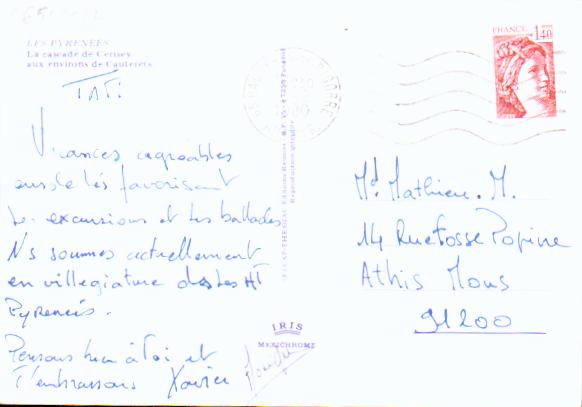 LES PYRENEES
La cascade de Cerisey
aux environs de Cauterets
TATI
Vacances agréables
favorisant
les excursions et les ballades
Ns sommes actuellement
en villegiature ds les Ht
Pyrenées.
Pensons bien à toi et
t'embrassons Xavier
IRIS
MEXICHROME
Reproduction interdite
FRANCE
1,40
Md. Mathieu. M.
14 Rue Fosse Popine
Athis Mons
91200